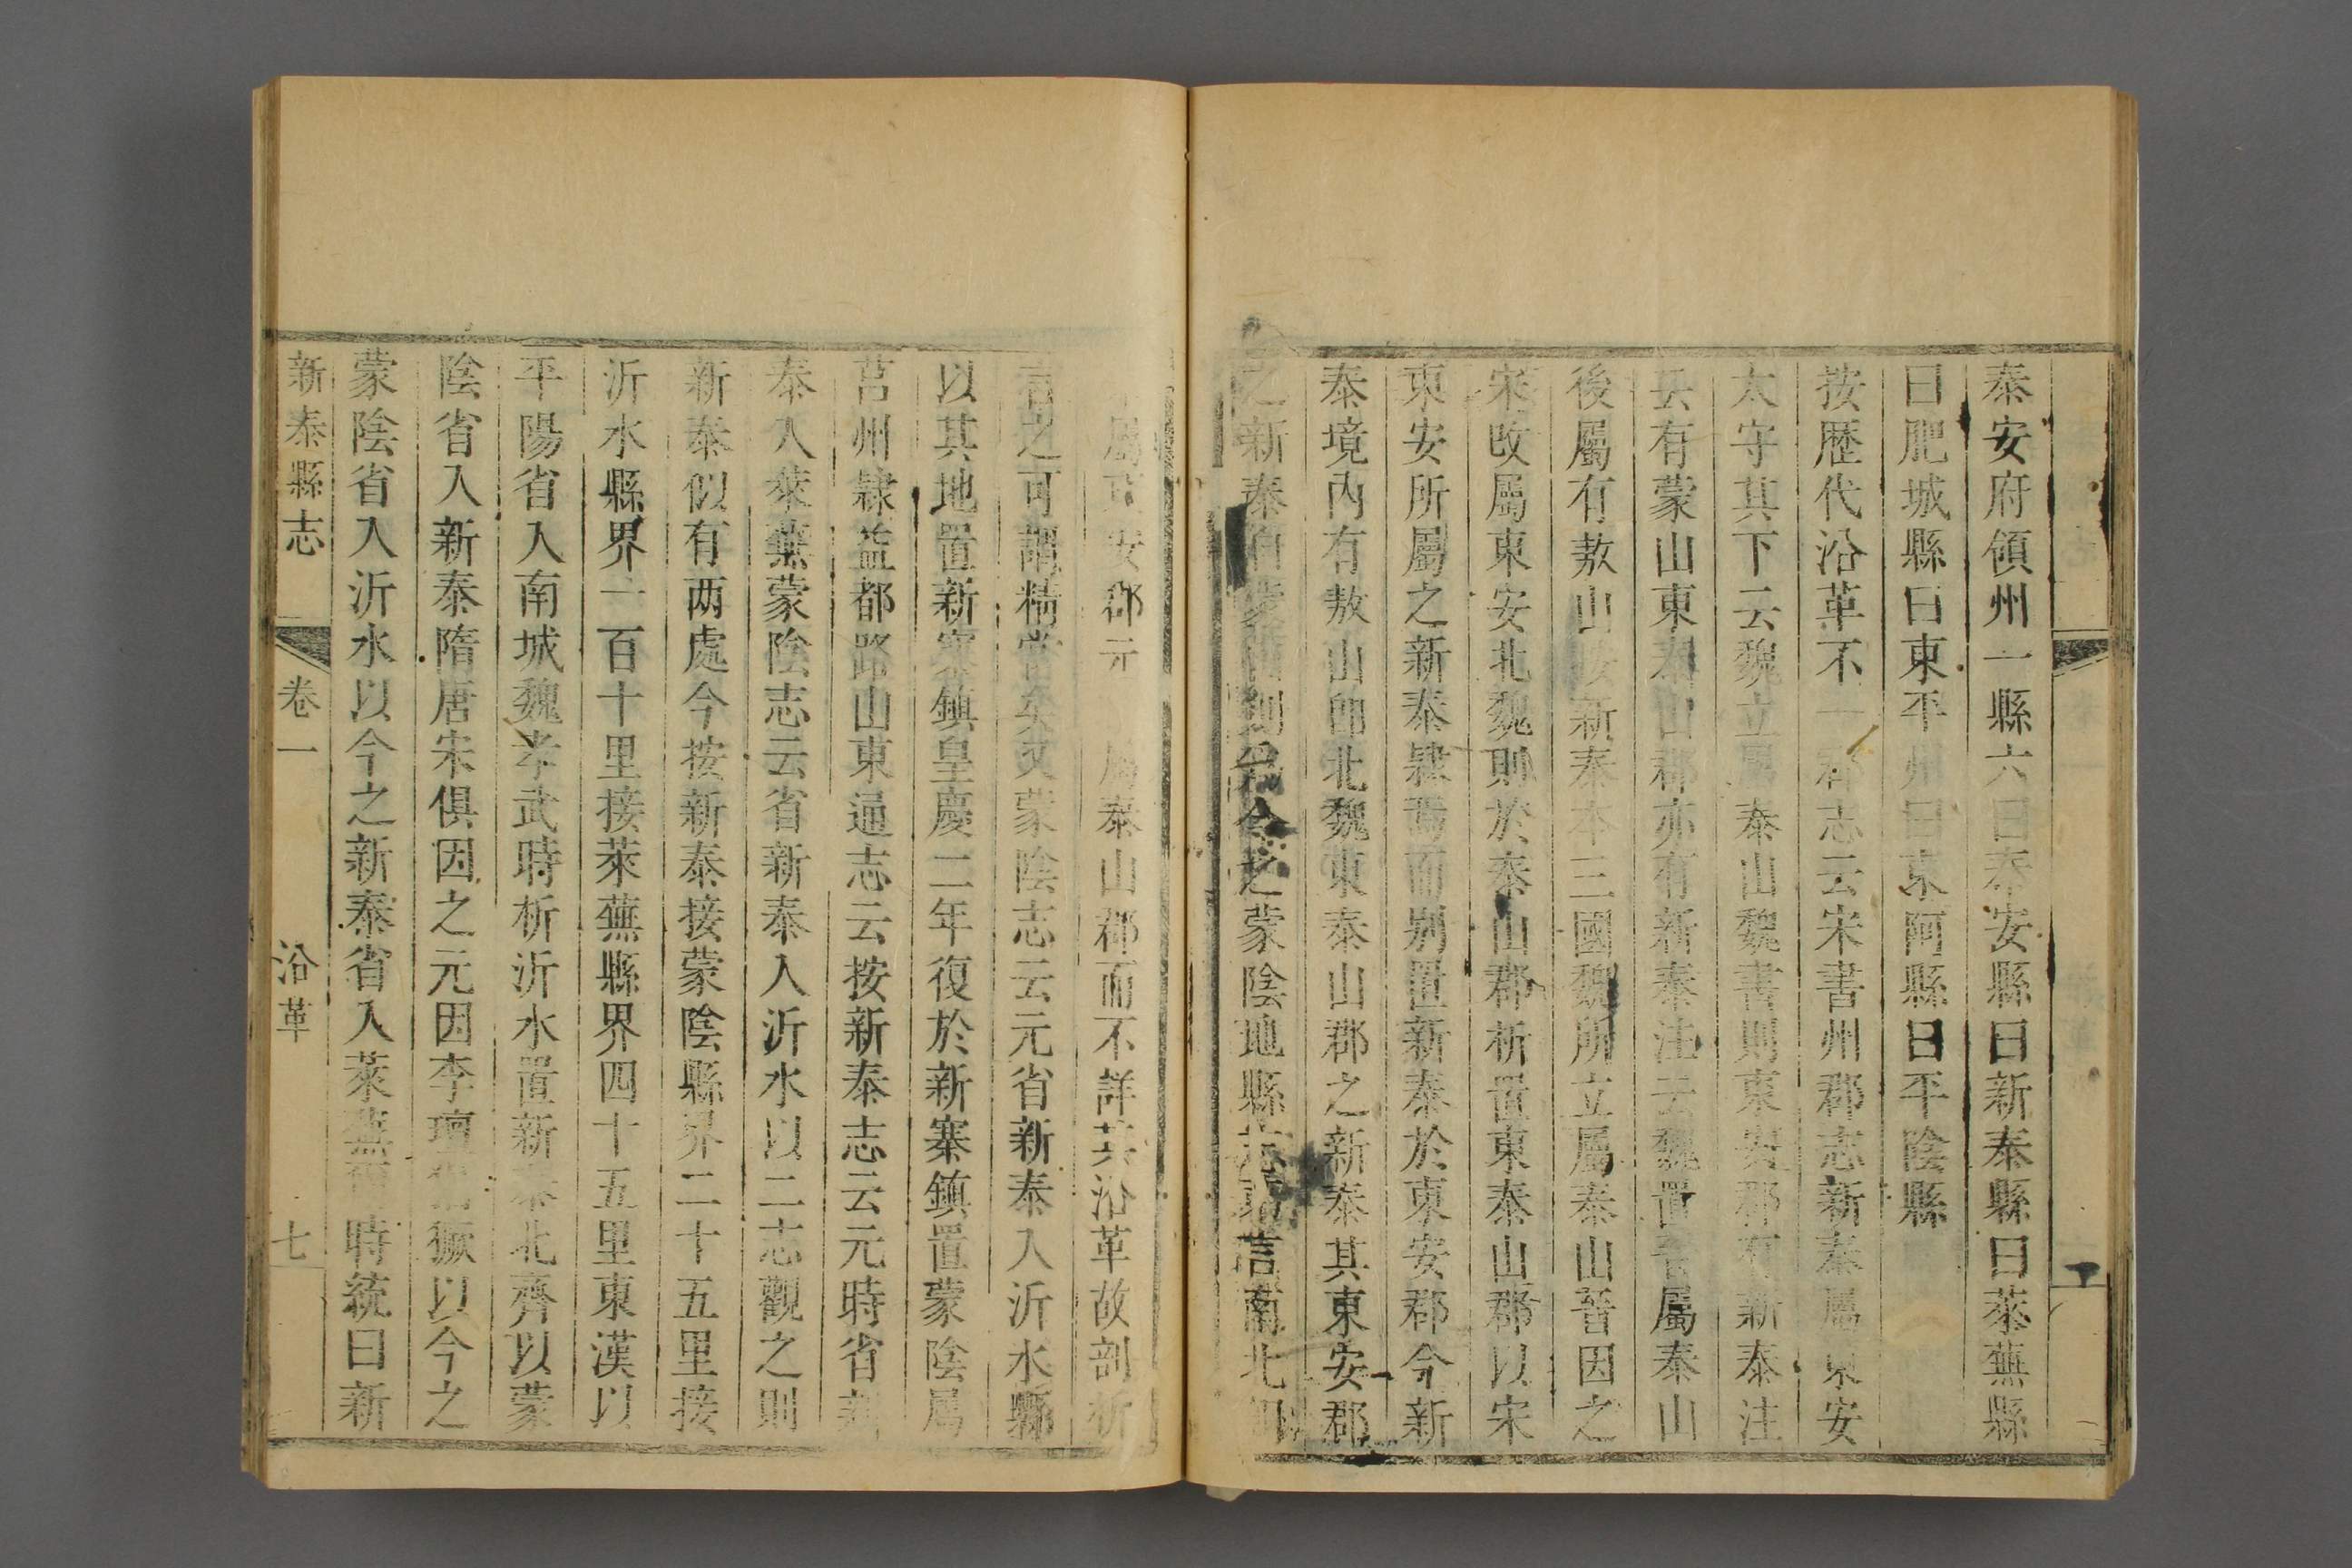 泰安府領州一縣六曰泰安縣曰新泰縣曰萊蕪縣
曰肥城縣曰東平州曰東阿縣曰平陰縣
按歷代沿革不一郡志云宋書州郡志新泰屬東安
太守其下云魏立屬泰山魏書則東安郡有新泰注
云有蒙山東泰山郡亦有新泰注云魏置晉屬泰山
後屬有敖山 新泰本三國魏所立屬泰山晉因之
宋改屬東安北魏則於泰山郡析置東泰山郡以宋
東安所屬之新泰隸焉而別置新泰於東安郡今新
泰境內有敖山卽北魏東泰山郡之新泰其東安郡
之新泰自 今之蒙陰地縣 言南北
屬東安郡元 屬泰山郡而不詳其沿革故剖析
言之可謂精當矣又蒙陰志云元省新泰入沂水縣
以其地置新寨鎮皇慶二年復於新寨鎮置蒙陰屬
莒州隸益都路山東通志云按新泰志云元時省新
泰入萊蕪蒙陰志云省新泰入沂水以二志觀之則
新泰似有两處今按新泰接蒙陰縣界二十五里接
沂水縣界一百十里接萊蕪縣界四十五里東漢以
平陽省入南城魏孝武時析沂水置新泰北齊以蒙
陰省入新泰隋唐宋俱因之元因李璮猖獗以今之
蒙陰省入沂水以今之新泰省入萊蕪 時統曰新
新泰縣志 卷一 沿革 七